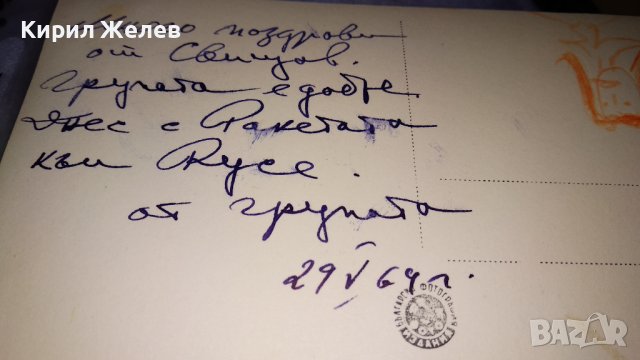 Кирил Желев
Много поздрави
от Свищов.
Групата е добре.
Днес с Ракетата
към Русе.
от групата
29 V 64 г.
БЪЛГАРСКА ФОТОГРАФИЯ
BAZAR
bg